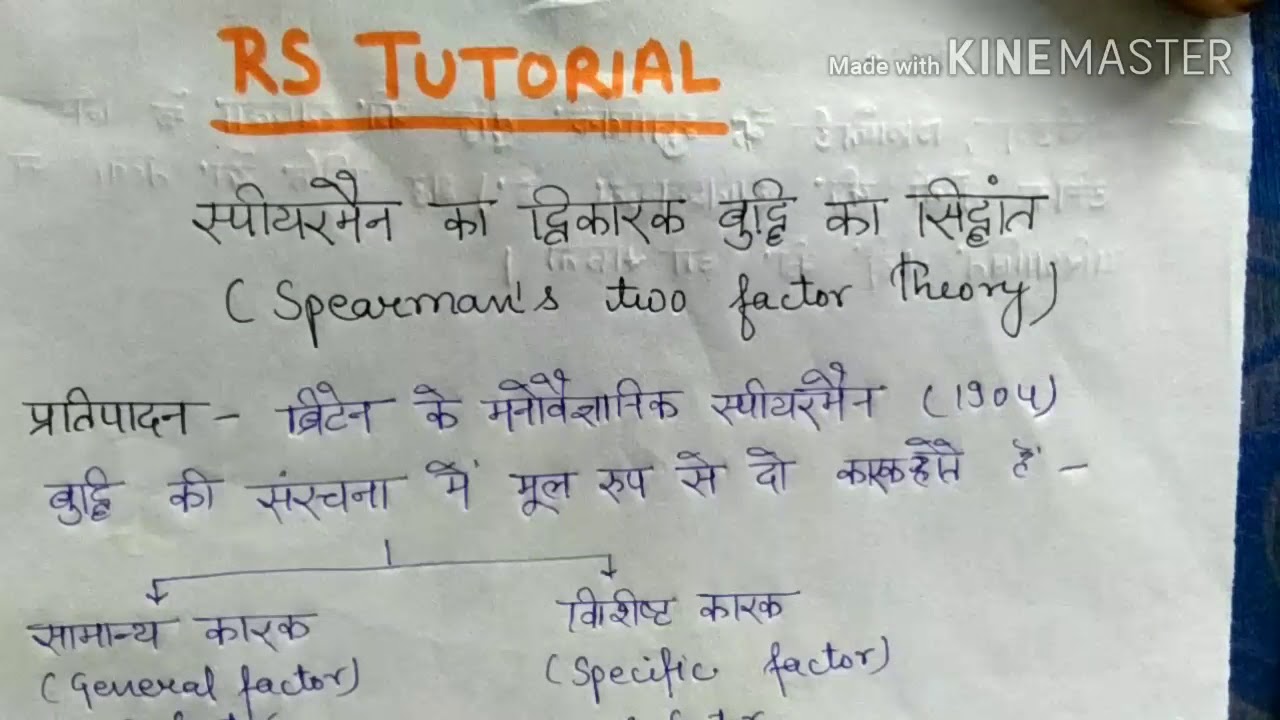 RS TUTORIAL
Made with KINEMASTER
स्पीयरमैन का द्विकारक बुद्धि का सिद्धांत
(Spearman's two factor Theory)
प्रतिपादन - ब्रिटेन के मनोवैज्ञानिक स्पीयरमैन (1904)
बुद्धि की संरचना में मूल रुप से दो कारक होते हैं -
सामान्य कारक
विशिष्ट कारक
(General factor)
(Specific factor)